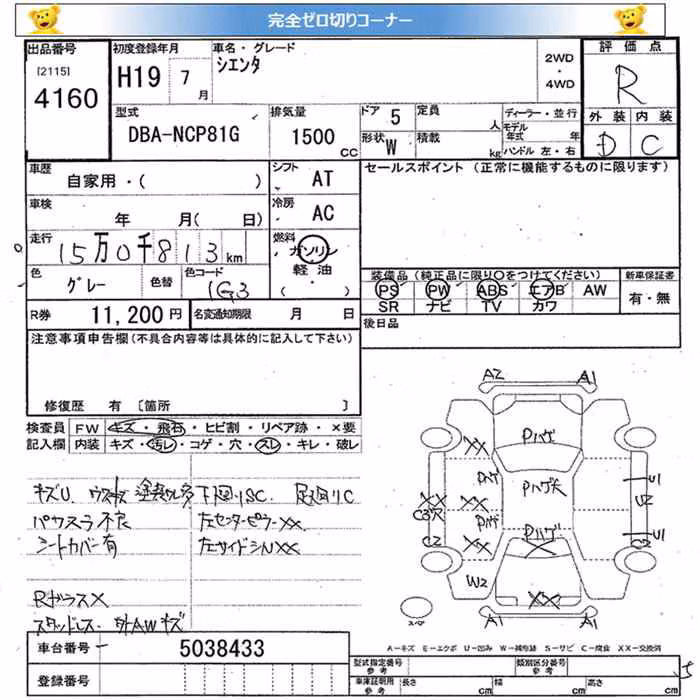 完全ゼロ切りコーナー
出品番号
[2115]
4160
初度登録年月
H19 7月
車名・グレード
シエンタ
2WD
・
4WD
評価点
R
外装 内装
D C
型式
DBA-NCP81G
排気量
1500 CC
ドア 5
形状 W
定員 人
積載 kg
ディーラー・並行
モデル年式 年
ハンドル 左・右
車歴
自家用・( )
シフト AT
車検
年 月( 日)
冷房 AC
走行
15万0千813km
燃料
ガソリン
軽油
( ・ )
色
グレー
色替
色コード
1G3
R券 11,200円
名変通知期限 月 日
セールスポイント (正常に機能するものに限ります)
装備品 (純正品に限り○をつけてください)
新車保証書
PS PW ABS エアB AW
SR ナビ TV カワ
有・無
後日品
注意事項申告欄(不具合内容等は具体的に記入して下さい)
修復歴 有 〔箇所 〕
検査員
記入欄
FW キズ・飛石・ヒビ割・リペア跡・×要
内装 キズ・汚レ・コゲ・穴・スレ・キレ・破レ
キズU 下回りSC 足回りC
パワスラ不良 左センターピラーXX
シートカバー有 左サイドシルXX
RガラスX
スタッドレス 外AWキズ
A2 A1
XX Pハゲ
Pハゲ PハゲX
U1
XX XX U2
C3穴 Pハゲ Pハゲ
U1
C2 XX X C2
W2
XX
スペア
A1 A1
A-キズ E-エクボ U-凹み W-補修跡 S-サビ C-腐食 XX-交換済
車台番号 5038433
登録番号
型式指定番号
参考
類別区分番号
参考
車庫証明用
参考
長さ cm 幅 cm 高さ cm